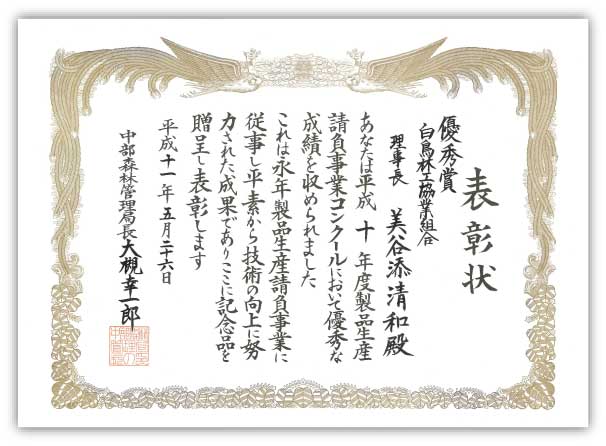 表彰状
優秀賞
白鳥林工協業組合
理事長 美谷添清和殿
あなたは平成十年度製品生産
請負事業コンクールにおいて優秀な
成績を収められました
これは永年製品生産請負事業に
従事し平素から技術の向上に努
力された成果でありここに記念品を
贈呈し表彰します
平成十一年五月二十六日
中部森林管理局長 大槻幸一郎